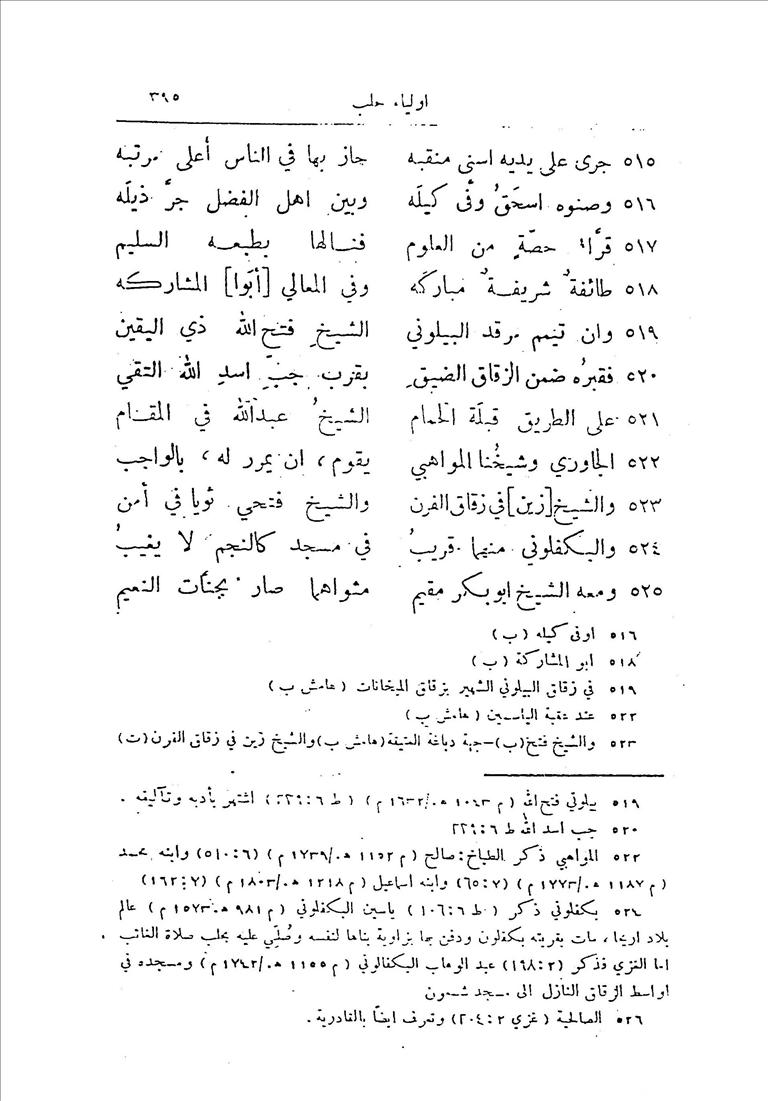 اولياء حلب ٣٩٥
٥١٥ جرى على يديه اسنى منقبه حاز بها في الناس أعلى مرتبه
٥١٦ وصنوه اسحقُ وفّى كيلَه وبين اهل الفضل جرَّ ذيلَه
٥١٧ قرّا حصّةٍ من العلوم فنالها بطبعه السليم
٥١٨ طائفةٌ شريفةٌ مباركَه وفي المعالي [أبَوا] المشاركه
٥١٩ وان تيمم مرقد البيلوني الشيخِ فتح الله ذي اليقين
٥٢٠ فقبرُه ضمن الزقاق الضيقِ بقرب جبِّ اسدِ الله التقي
٥٢١ على الطريق قبلَة الحمام الشيخُ عبدالله في المقام
٥٢٢ الجاوري وشيخُنا المواهبي يقوم، ان يمرر له، بالواجب
٥٢٣ والشيخ [زين] في زقاق الفرن والشيخ فتحي ثويا في أمن
٥٢٤ والبكفلوني منهما قريبُ في مسجد كالنجم لا يغيبُ
٥٢٥ ومعه الشيخ ابو بكر مقيم مثواهما صار بجنّات النعيم
٥١٦ اوفى كيله (ب)
٥١٨ ابو المشاركة (ب)
٥١٩ في زقاق البيلوني الشهير بزقاق الميخانات (هامش ب)
٥٢٢ عند عقبة الياسمين (هامش ب)
٥٢٣ والشيخ فتح (ب) – جهة دباغة العتيقة (هامش ب) والشيخ زين في زقاق الفرن (ت)
٥١٩ بيلوني فتح الله (م ١٠٤٣ هـ./١٦٣٢ م) (ط ٦:٢٣٩) اشتهر بأدبه وتآليفه .
٥٢٠ جب اسد الله ط ٦:٢٣٩
٥٢٢ المواهبي ذكر الطباخ: صالح (م ١١٥٢ هـ./١٧٣٩ م) (٦:٥١٠) وابنه محمد
(م ١١٨٧ هـ./١٧٧٣ م) (٧:٦٥) وابنه اسماعيل (م ١٢١٨ هـ./١٨٠٣ م) (٧:١٦٢)
٥٢٤ بكفلوني ذكر (ط ٦:١٠٦) ياسين البكفلوني (م ٩٨١ هـ./١٥٧٣ م) عالم
بلاد اريحا، مات بقريته بكفلون ودفن بها بزاوية بناها لنفسه وصُلّي عليه بحلب صلاة الغائب .
اما الغزي فذكر (٢:١٦٨) عبد الوهاب البكفالوني (م ١١٥٥ هـ./١٧٤٢ م) ومسجده في
اواسط الزقاق النازل الى مسجد شمعون
٥٢٦ الصالحية (غزي ٢:٢٠٤) وتعرف ايضاً بالقادرية .